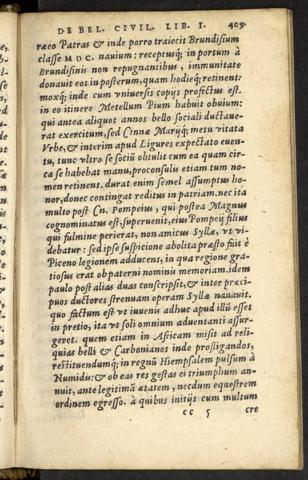 DE BEL. CIVIL. LIB. I. 409
ræo Patras & inde porro traiecit Brundisium
classe M D C. nauium: receptusq́; in portum à
Brundisinis non repugnantibus, immunitate
donauit eos in posterum, quam hodieq́; retinent:
moxq́; inde cum vniuersis copijs profectus est.
in eo itinere Metellum Pium habuit obuium:
qui antea aliquot annos bello sociali ductaue-
rat exercitum, sed Cinnæ Marijq́; metu vitata
Vrbe, & interim apud Ligures expectato euen-
tu, tunc vltro se sociũ obtulit cum ea quam cir-
ca se habebat manu, proconsulis etiam tum no-
men retinens. durat enim semel assumptus ho-
nor, donec contingat reditus in patriam. nec ita
multo pòst Cn. Pompeius, qui postea Magnus
cognominatus est, superuenit, eius Pompeij filius
qui fulmine perierat, non amicus Syllæ, vt vi-
debatur: sed ipse suspicione abolita præsto fuit è
Piceno legionem adducens, in qua regione gra-
tiosus erat ob paterni nominis memoriam. idem
paulo pòst alias duas conscripsit, & inter præci-
puos ductores strenuam operam Syllæ nauauit.
quo factum est vt iuueni adhuc apud illũ esset
in pretio, ita vt soli omnium aduentanti assur-
geret. quem etiam in Africam misit ad reli-
quias belli & Carbonianos inde profligandos,
restituendumq́; in regnũ Hiempsalem pulsum à
Numidis: & ob eas res gestas ei triumphum an-
nuit, ante legitimã ætatem, necdum equestrem
ordinem egresso. à quibus initijs cum multum
cc 5 cre